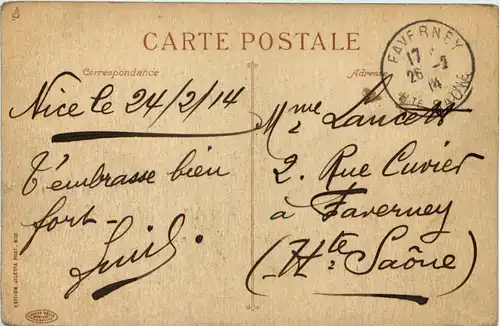 CARTE POSTALE
Correspondance
Adresse
FAVERNEY
17
26 -2
14
HTE SAÔNE
Nice le 24/2/14
t'embrasse bien
fort.
Mme
2. Rue Cuvier
à Faverney
(Hte Saône)